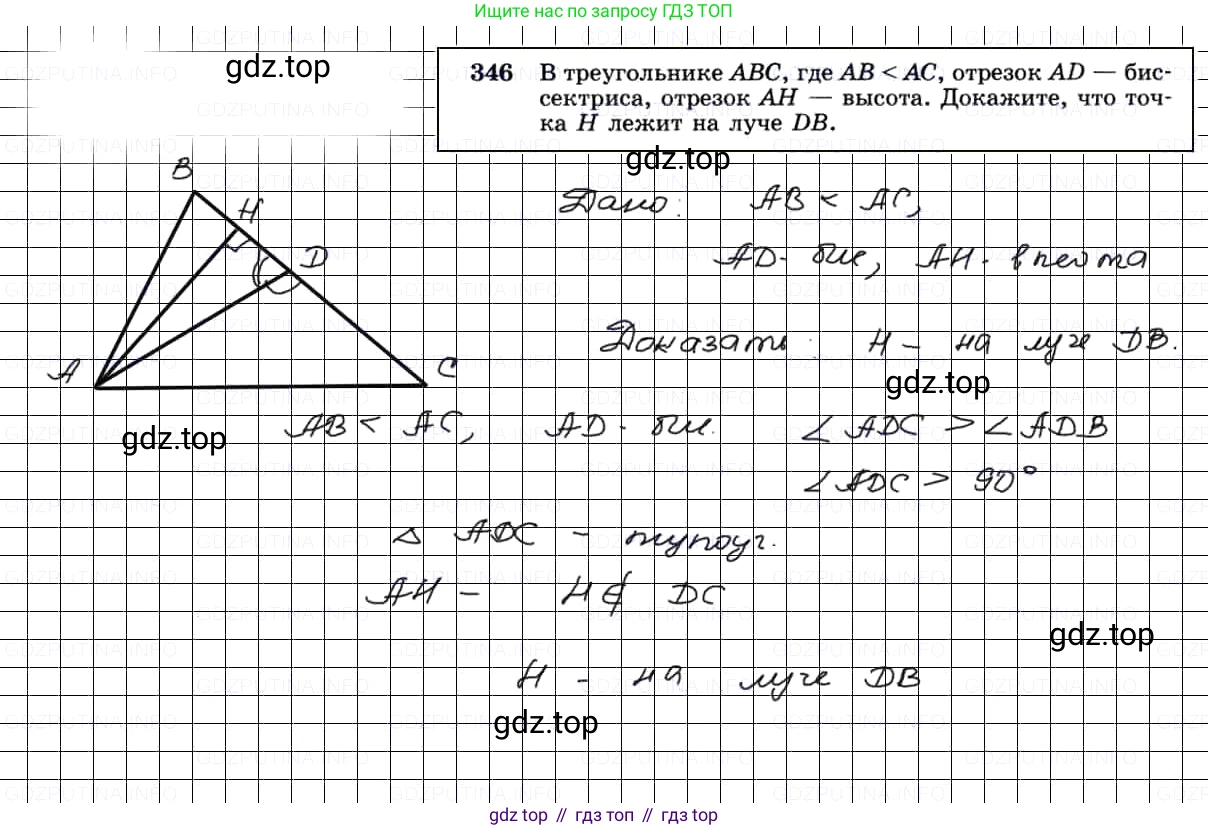 Ищите нас по запросу ГДЗ ТОП
gdz.top
346 В треугольнике ABC, где AB < AC, отрезок AD — бис-
сектриса, отрезок AH — высота. Докажите, что точ-
ка H лежит на луче DB.
gdz.top
B
H
D
A
C
Дано: AB < AC,
AD - бис, AH - высота
Доказать: H — на луче DB.
gdz.top
gdz.top
AB < AC, AD - бис. ∠ADC > ∠ADB
∠ADC > 90°
△ ADC — тупоуг.
AH — H ∉ DC
gdz.top
H — на луче DB
gdz.top
gdz.top // гдз топ // гдз top
GDZPUTINA.INFO